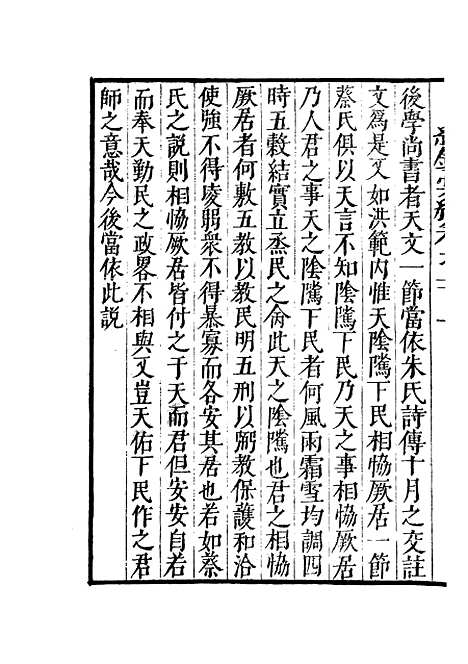 後學尚書者天文一節當依朱氏詩傳十月之交註
文爲是又如洪範内惟天陰隲下民相恊厥居一節
蔡氏俱以天言不知陰隲下民乃天之事相恊厥居
乃人君之事天之陰隲下民者何風雨霜雪均調四
時五穀結實立烝民之命此天之陰隲也君之相恊
厥居者何敷五教以教民明五刑以弼教保護和洽
使強不得凌弱衆不得暴寡而各安其居也若如蔡
氏之説則相恊厥居皆付之于天而君但安安自若
而奉天勤民之政畧不相與又豈天佑下民作之君
師之意哉今後當依此説